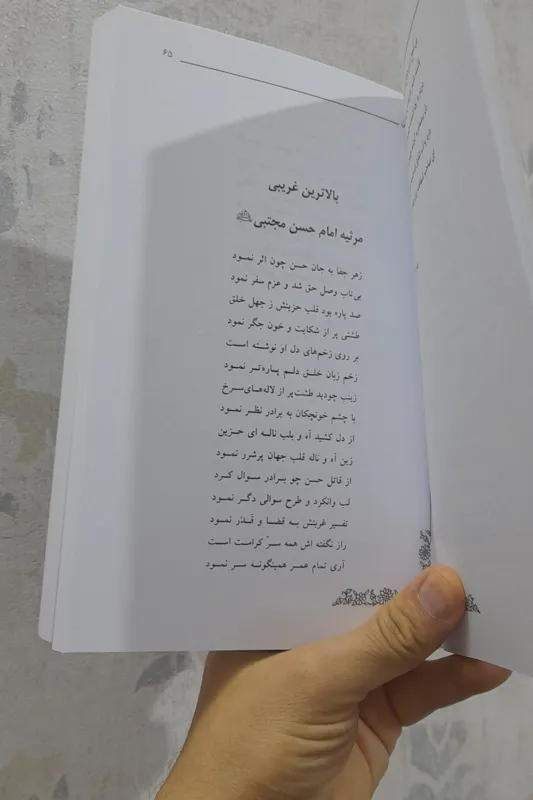 ۶۵
بالاترین غریبی
مرثیه امام حسن مجتبی
زهر جفا به جان حسن چون اثر نمـود
بی‌تاب وصل حق شد و عزم سفر نمود
صد پاره بود قلب حزینش ز جهل خلق
طشتی پر از شکایت و خون جگر نمود
بر روی زخم‌های دل او نوشته است
زخم زبان خلـق دلـم پـاره‌تـر نمـود
زینب چودید طشت‌پر از لاله‌هـای‌سـرخ
با چشم خونچکان به برادر نظـر نمـود
از دل کشید آه و بلب ناله ای حـزین
زین آه و ناله قلب جهان پرشرر نمـود
از قاتل حسن چو بـرادر سـوال کـرد
لب وانکرد و طرح سوالی دگـر نمـود
تفسیر غربتش بـه قضـا و قَـدَر نمـود
راز نگفته اش همه سرّ کرامت است
آری تمام عمـر همینگونـه سـر نمـود